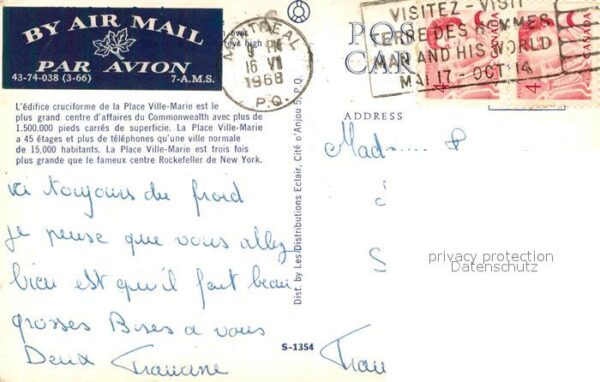 BY AIR MAIL
PAR AVION
43-74-038 (3-66) 7-A.M.S.
MONTREAL
PM
16 VI
1968
P.Q.
VISITEZ - VISIT
TERRE DES HOMMES
MAN AND HIS WORLD
MAI 17 - OCT 14
CANADA
4
CANADA
4
ADDRESS
L'édifice cruciforme de la Place Ville-Marie est le
plus grand centre d'affaires du Commonwealth avec plus de
1.500,000 pieds carrés de superficie. La Place Ville-Marie
a 45 étages et plus de téléphones qu'une ville normale
de 15,000 habitants. La Place Ville-Marie est trois fois
plus grande que le fameux centre Rockefeller de New York.
ici toujours du froid
je pense que vous allez
bien est qu'il fait beau
grosses Bises a vous
Deux Francine
Dist. by Les Distributions Eclair, Cité d'Anjou 5, P.Q.
S-1354
Mad
P
S
Fran
privacy protection
Datenschutz